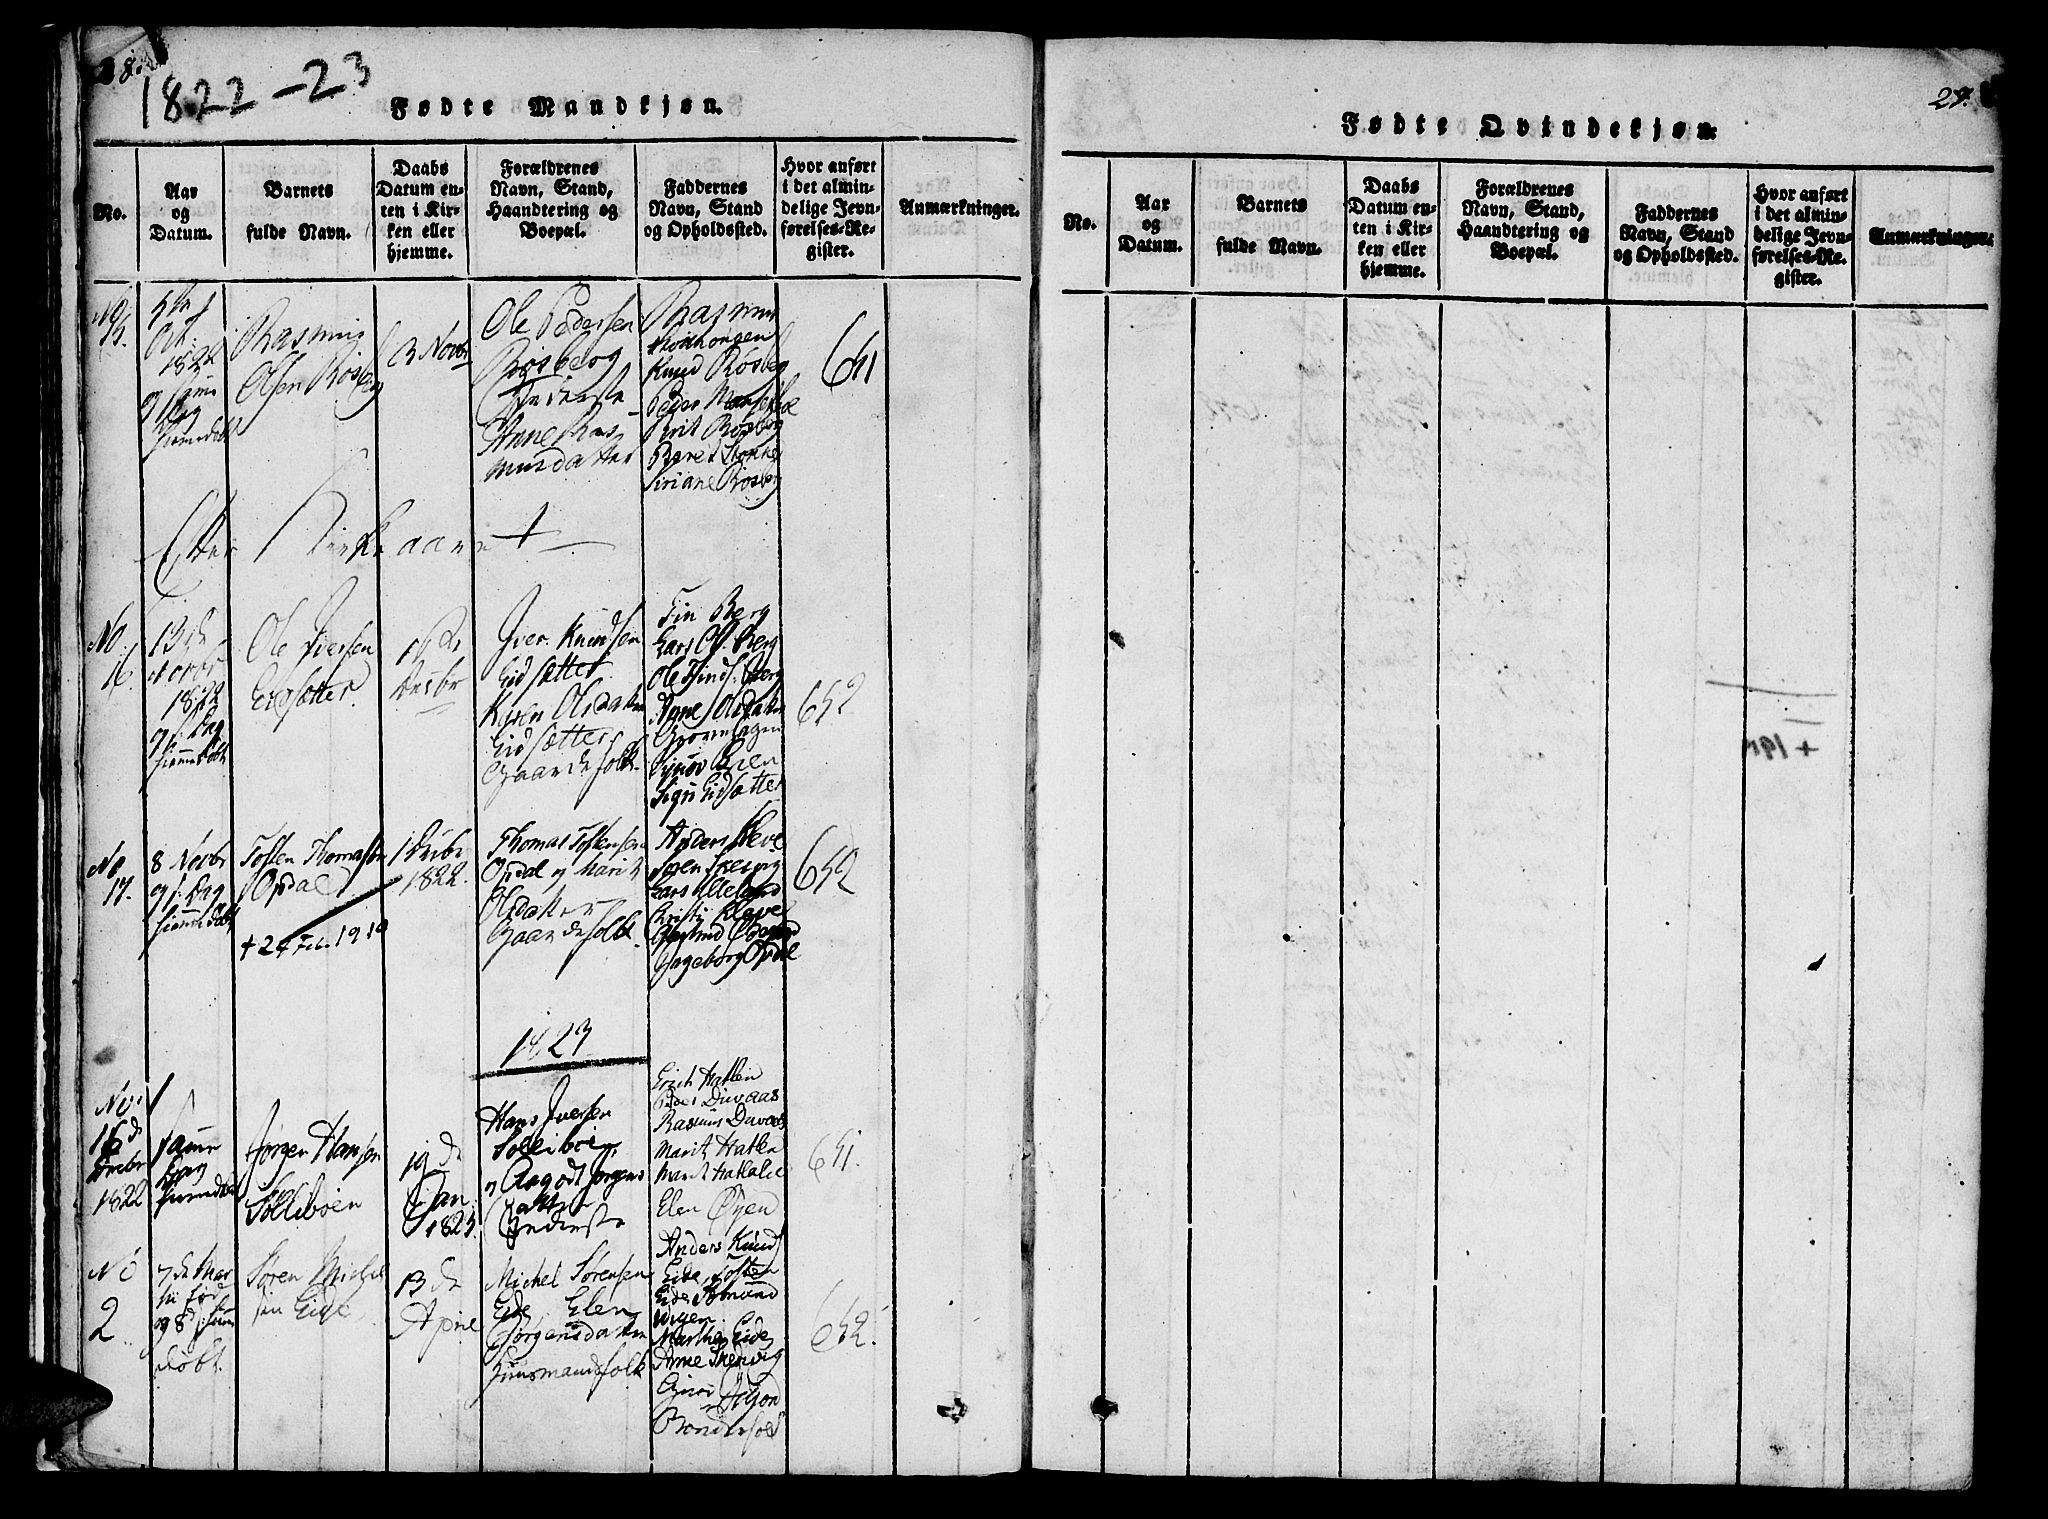 28.
1822-23
Fødte Mandkjøn.
No.
Aar
og
Datum.
Barnets
fulde Navn.
Daabs
Datum en-
ten i Kir-
ken eller
hjemme.
Forældrenes
Navn, Stand,
Haandtering og
Boepæl.
Faddernes
Navn, Stand
og Opholdssted.
Hvor anført
i det almin-
delige Jevn-
førelses-Re-
gister.
Anmærkninger.
No
15.
Oct.
1822
Rasmus
Olsen Røsberg
3 Novbr
Ole Pedersen
Røsberg
Inderste
Anne Ras
musdatter
Rasmus
Knud Røsberg
Peder
Brit Røsberg
Beret
Siriane Røsberg
651
Efter Kirkeaaret
No
16.
13 de
Novbr
1822
og s. Dag
hiemedøbt
Ole Iversen
Eidsætter.
Decbr
Iver Knudsen
Eidsætter
Karen Olsdatter
Eidsætter
Gaardefolk.
Fin Berg
Lars Ol. Berg
Ole Finds. Berg
Anne Olsdatter
Synøv
Sigri Eidsætter
652
No
17.
8 Novbr
og s. Dag
hiemedøbt
Tosten Thomassen
Opdal
+ 24 Feb. 1919
1 Decbr
1822.
Thomas Tostensen
Opdal og Marit
Olsdatter
Gaardefolk.
Anders Kleve
Søren Skervig
Lars
Kristi Kleve
Gertrud
Ingeborg Opdal
652
1823
No. 1
16 de
Decbr
1822
samme
Dag
hiemedøbt
Jørgen Hansen
Sølliboen
19 de
Jan.
1823.
Hans Iversen
Sølliboen
og Aagodt Jørgens
datter
Inderste
Erich Hatlen
Peder Duvaas
Rasmus Duvaas
Marit Hatlen
Marit Hatlelie
Elen Øyen
651.
No
2
7 de Mar
tii født
og 8 d. hiem
døbt.
Søren Michel
sen Eide
13 de
April
Michel Sørensen
Eide, Elen
Jørgensdatter
Huusmandsfolk
Anders Knuds
Eide, Tosten
Eide,
Marthe Eide
Anne Skervig
Guri
Bønderfolk
652.
29.
Fødte Qvindekjøn.
No.
Aar
og
Datum.
Barnets
fulde Navn.
Daabs
Datum en-
ten i Kir-
ken eller
hjemme.
Forældrenes
Navn, Stand,
Haandtering og
Boepæl.
Faddernes
Navn, Stand
og Opholdssted.
Hvor anført
i det almin-
delige Jevn-
førelses-Re-
gister.
Anmærkninger.